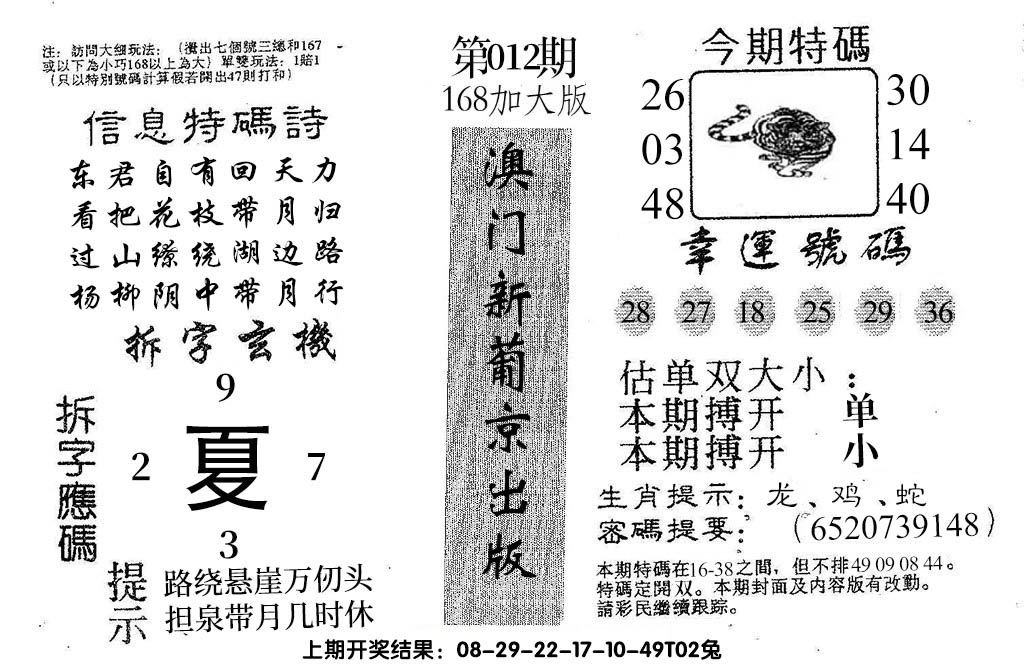 注：訪問大細玩法：（攪出七個號三總和167
或以下為小巧168以上為大）單雙玩法：1賠1
（只以特別號碼計算假若開出47則打和）
信息特碼詩
东君自有回天力
看把花枝带月归
过山缭绕湖边路
杨柳阴中带月行
拆字玄機
拆字應碼
9
2 夏 7
3
提示
路绕悬崖万仞头
担泉带月几时休
第012期
168加大版
澳门新葡京出版
今期特碼
26 30
03 14
48 40
幸運號碼
28 27 18 25 29 36
估单双大小：
本期搏开 单
本期搏开 小
生肖提示：龙、鸡、蛇
密碼提要：（6520739148）
本期特碼在16-38之間，但不排49 09 08 44。
特碼定開双。本期封面及内容版有改動。
請彩民繼續跟踪。
上期开奖结果：08-29-22-17-10-49T02兔